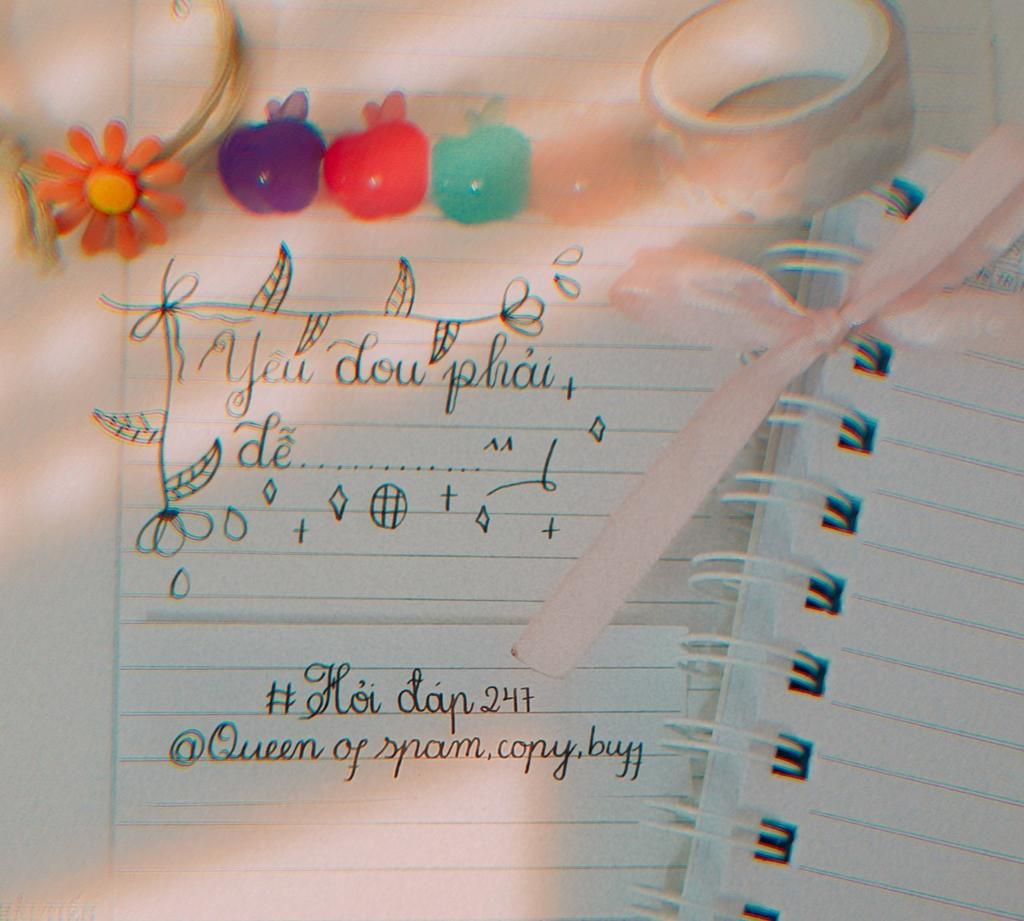 Yêu dou phải,
dễ.............^^
#Hỏi đáp 247
@Queen of spam,copy,buff